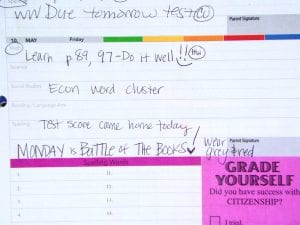 WW Due tomorrow test
Parent Signature
10. MAY Friday
Learn p 89, 97 - Do it well!!
Science
Social Studies
Econ word cluster
Reading / Language Arts
Spelling
Test score came home today
MONDAY is BATTLE of THE BOOKS!
wear grey & red
Parent Signature
Spelling Words
1. 11.
2. 12.
3. 13.
4. 14.
GRADE
YOURSELF
Did you have success with
CITIZENSHIP?
I tried.